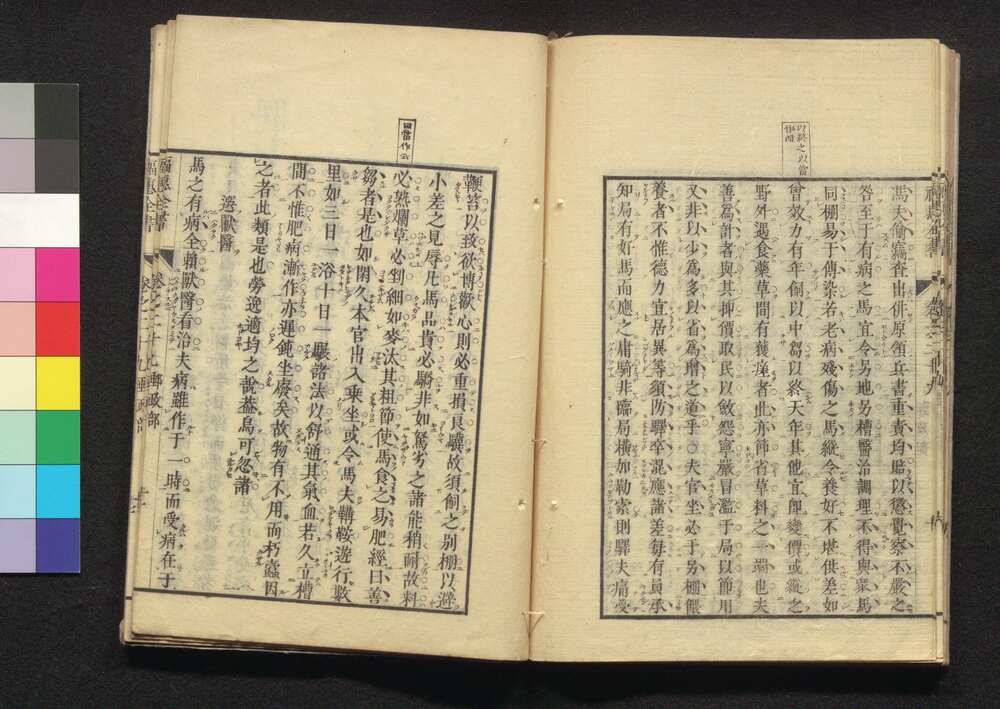 馬夫偷竊查出併原領兵書重責均賠以懲覺察不嚴之
咎至于有病之馬宜令另地另槽醫治調理不得與衆馬
同棚易于傳染若老病殘傷之馬縱令養好不堪供差如
曾效力有年飼以中芻以終天年其他宜即變價或縱之
野外遇食藥草間有獲瘥者此亦節省草料之一端也夫
善爲計者與其抑價取民以斂怨寧嚴冒濫于局以節用
又非以少爲多以省爲增之道乎○夫官坐必于另棚餵
養者不惟德力宜居異等須防驛卒混應諸差每有員承
知局有好馬而應之庸騎非臨局橫加勒索則驛夫痛受
鞭笞以致欲博歡心則必重損良驥故須飼之別棚以避
小差之見辱凡馬品貴必驕非如駑劣之諸能稍耐故料
必熟爛草必剉細如麥汰其粗節使馬食之易肥經曰善
芻者是也如閑久本官出入乘坐或令馬夫鞲鞍遊行數
里如三日一浴十日一騸諸法以舒通其氣血若久立槽
間不惟肥病漸作亦遲鈍坐廢矣故物有不用而朽蠹因
之者此類是也勞逸適均之說蓋烏可忽諸
選獸醫
馬之有病全賴獸醫看治夫病雖作于一時而受病在于
福惠全書
卷之二十九
郵政部